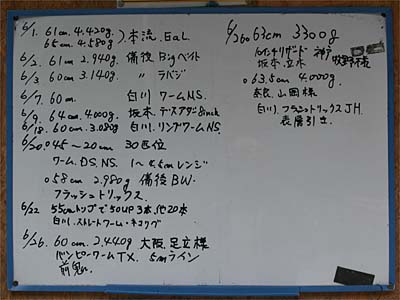 6/1. 61cm 4.420g.
65cm 4.580g ). 本流. Gal.
6/2. 61cm 2.940g. 備後 Bigベイト
6/3 60cm 3.140g. 〃 ラバジ
6/7. 60m. 白川 ワームNS.
6/9. 64cm. 4.000g. 坂本. 8inch
6/18. 60cm. 3.080g 白川. リングワームNS.
6/20. 45~20cm 30匹位
ワーム. DS. NS. 1~4.5mレンジ
○58cm 2.980g 備後 BW.
フラッシュトリックス.
6/22 55cmトップで50UP3本. 他20本
白川. ストレートワーム・ネコリグ
6/26. 60cm. 2.440g 大阪. 足立様
ワームTX. 5mライン
前鬼.
6/26 63cm 3300g
神戸
坂本. 立木 牧野様
○63.5cm 4.000g
奈良. 山岡様
白川. フラッシュトリックスJH.
表層引き.